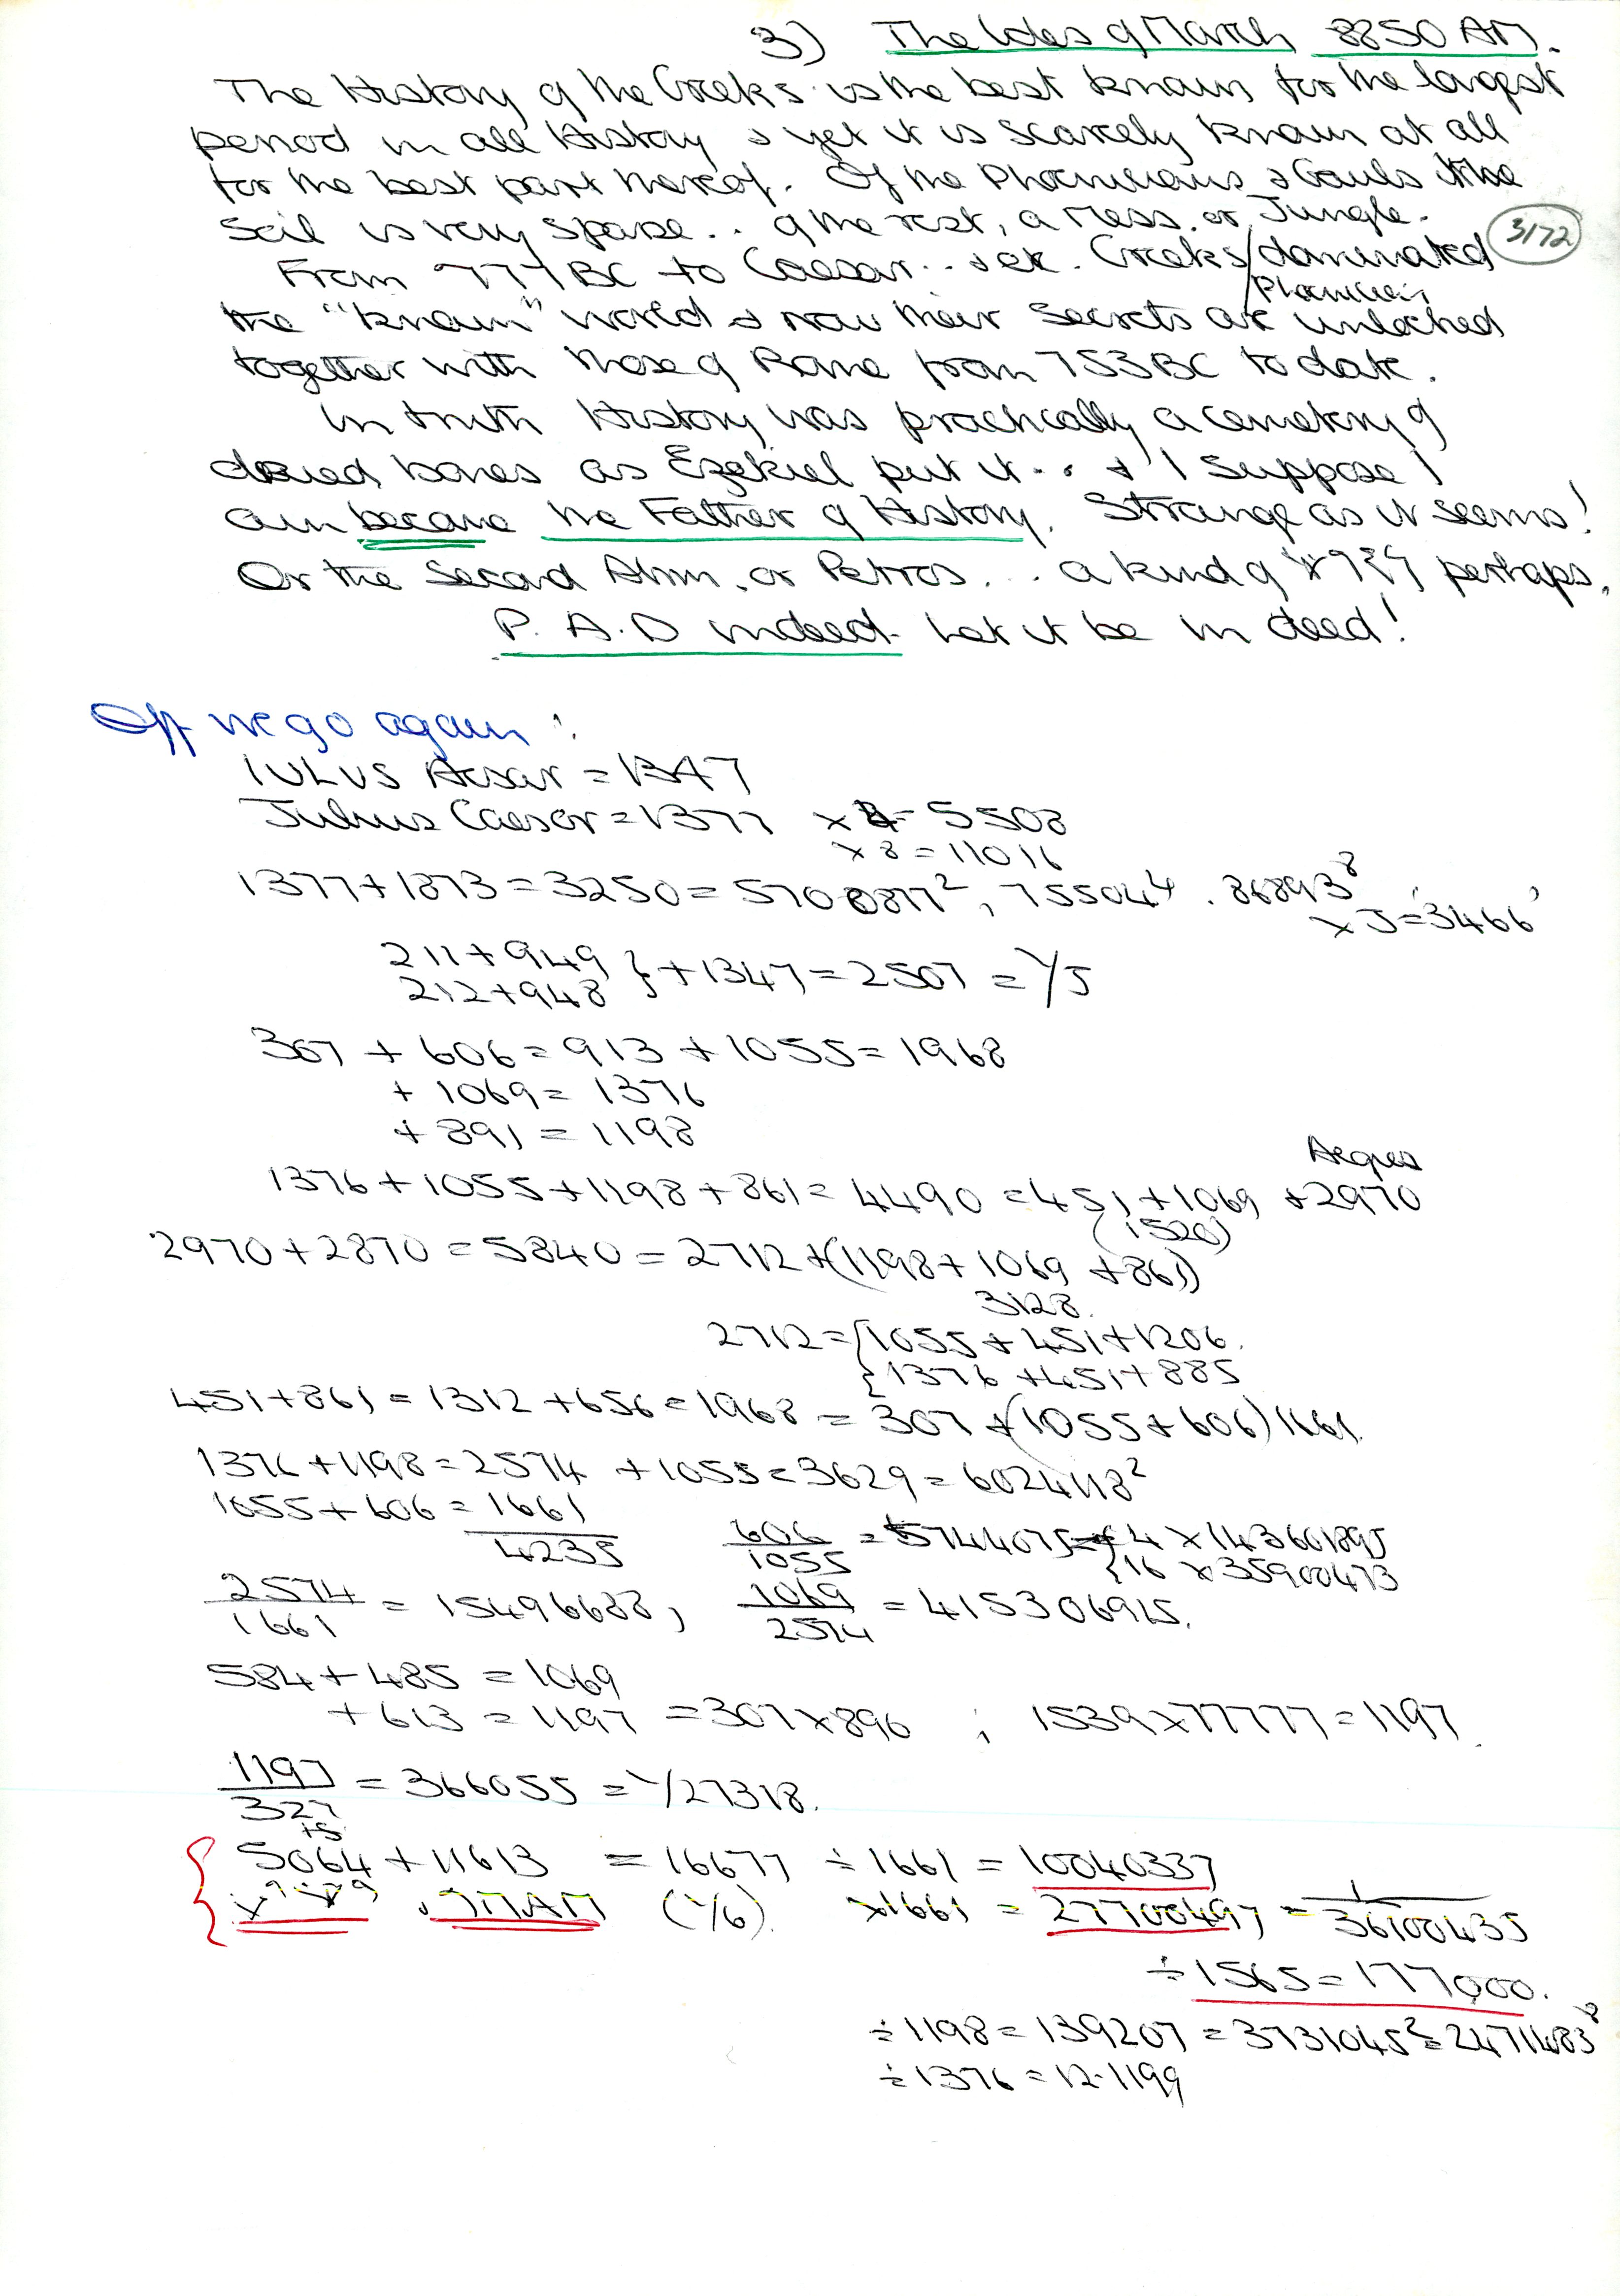 3) The Ides of March 8850 AM.
The History of the Greeks is the best known for the longest
period in all History & yet it is scarcely known at all
for the best part thereof. Of the Phoenicians & Gauls the
soil is very sparse.. of the rest, a mess. or Jungle.
3172
From 777 BC to Caesar.. Greeks/dominated
Phoenician
the "known" world & now their secrets are unlocked
together with those of Rome from 753 BC to date.
In truth History was practically a cemetery of
dried bones as Ezekiel put it... & I suppose I
am become the Father of History. Strange as it seems!
Or the Second Ahm. or Petros... a kind of perhaps.
P.A.D indeed. Let it be in deed!
Off we go again:
IULUS Acsar = 1347
Julius Caesar = 1377 x 4 = 5508
x 8 = 11016
1377 + 1873 = 3250 = 5700877², 75504⁴. 86893⁸
x J = '3466'
211 + 949
212 + 948 } + 1347 = 2507 = 1/J
307 + 606 = 913 + 1055 = 1968
+ 1069 = 1376
+ 891 = 1198
Aequus
1376 + 1055 + 1198 + 861 = 4490 = 451 + 1069 + 2970
(1520)
2970 + 2870 = 5840 = 2712 + (1198 + 1069 + 861)
3128.
2712 = { 1055 + 451 + 1206.
{ 1376 + 451 + 885
451 + 861 = 1312 + 656 = 1968 = 307 + (1055 + 606) 1661.
1376 + 1198 = 2574 + 1055 = 3629 = 6024118²
1055 + 606 = 1661
4235
606/1055 = 5744075 = { 4 x 143601895
{ 16 x 35900473
2574/1661 = 15496688, 1069/2574 = 415306915.
584 + 485 = 1069
+ 613 = 1197 = 307 x 890 ; 1539 x 77777 = 1197.
1197/327 = 366055 = 1/27318.
+5
5064 + 11613 = 16677 ÷ 1661 = 10040337
(1/6). x 1661 = 27700497 = 1/36100435
÷ 1565 = 177000.
÷ 1198 = 139207 = 3731045² = 2471483⁸
÷ 1376 = 12.1199